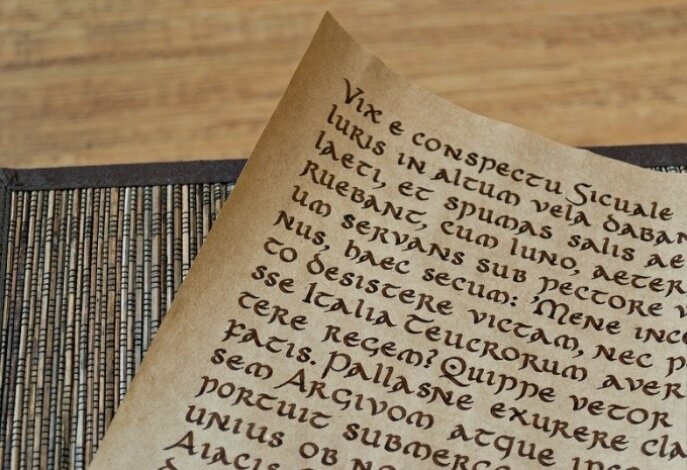 Vix e conspectu Sicuale
luris in altum vela daban
laeti, et spumas salis ae
ruebant, cum luno, aeter
um servans sub pectore v
nus, haec secum: 'Mene inc
to desistere victam, nec p
sse Italia Teucrorum aver
tere regem? Quippe vetor
fatis. Pallasne exurere cla
sem Argivom atque in
portuit submerg
unius ob no
Aiacis